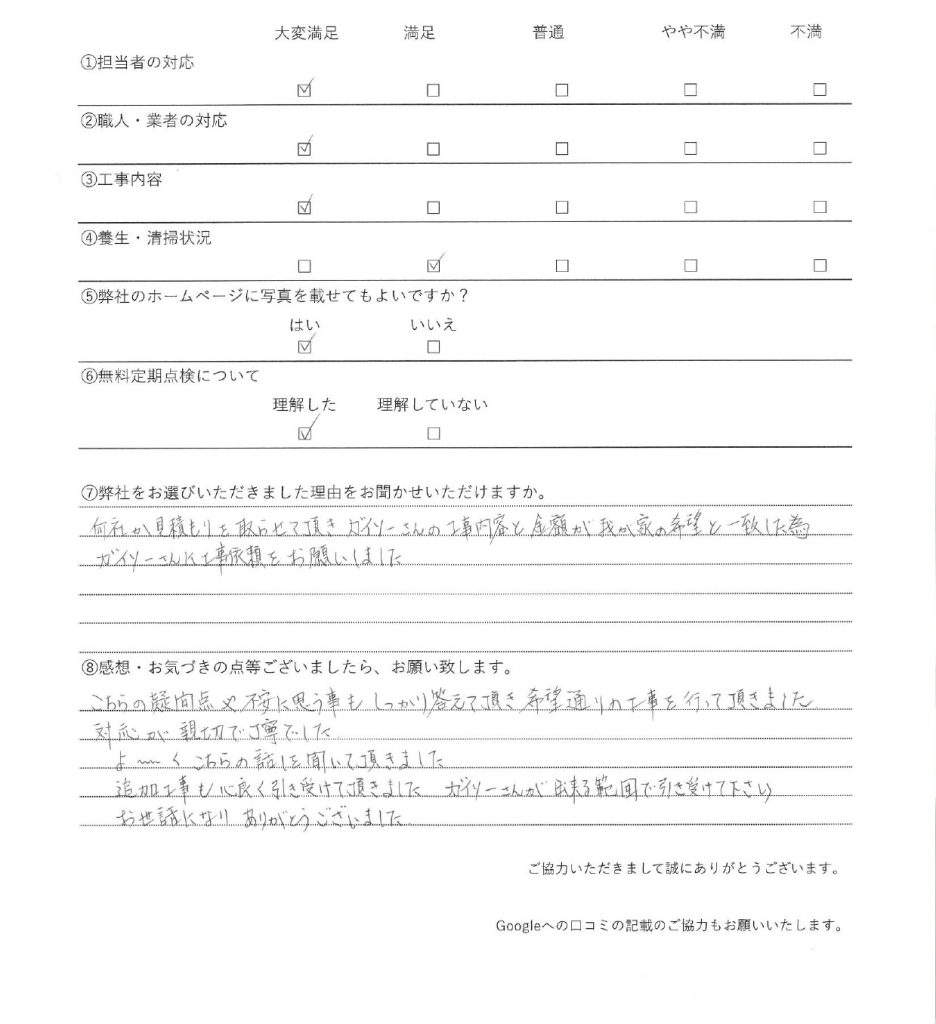 大変満足 満足 普通 やや不満 不満
①担当者の対応
☑ □ □ □ □
②職人・業者の対応
☑ □ □ □ □
③工事内容
☑ □ □ □ □
④養生・清掃状況
□ ☑ □ □ □
⑤弊社のホームページに写真を載せてもよいですか？
はい いいえ
☑ □
⑥無料定期点検について
理解した 理解していない
☑ □
⑦弊社をお選びいただきました理由をお聞かせいただけますか。
何社か見積もりを取らせて頂き ガイソーさんの工事内容と金額が我が家の希望と一致した為
ガイソーさんに工事依頼をお願いしました
⑧感想・お気づきの点等ございましたら、お願い致します。
こちらの疑問点や不安に思う事も しっかり答えて頂き 希望通りの工事を行って頂きました
対応が親切で丁寧でした
よ〜〜く こちらの話しを聞いて頂きました
追加工事も心良く引き受けて頂きました ガイソーさんが出来る範囲で引き受けて下さい
お世話になり ありがとうございました
ご協力いただきまして誠にありがとうございます。
Googleへの口コミの記載のご協力もお願いいたします。